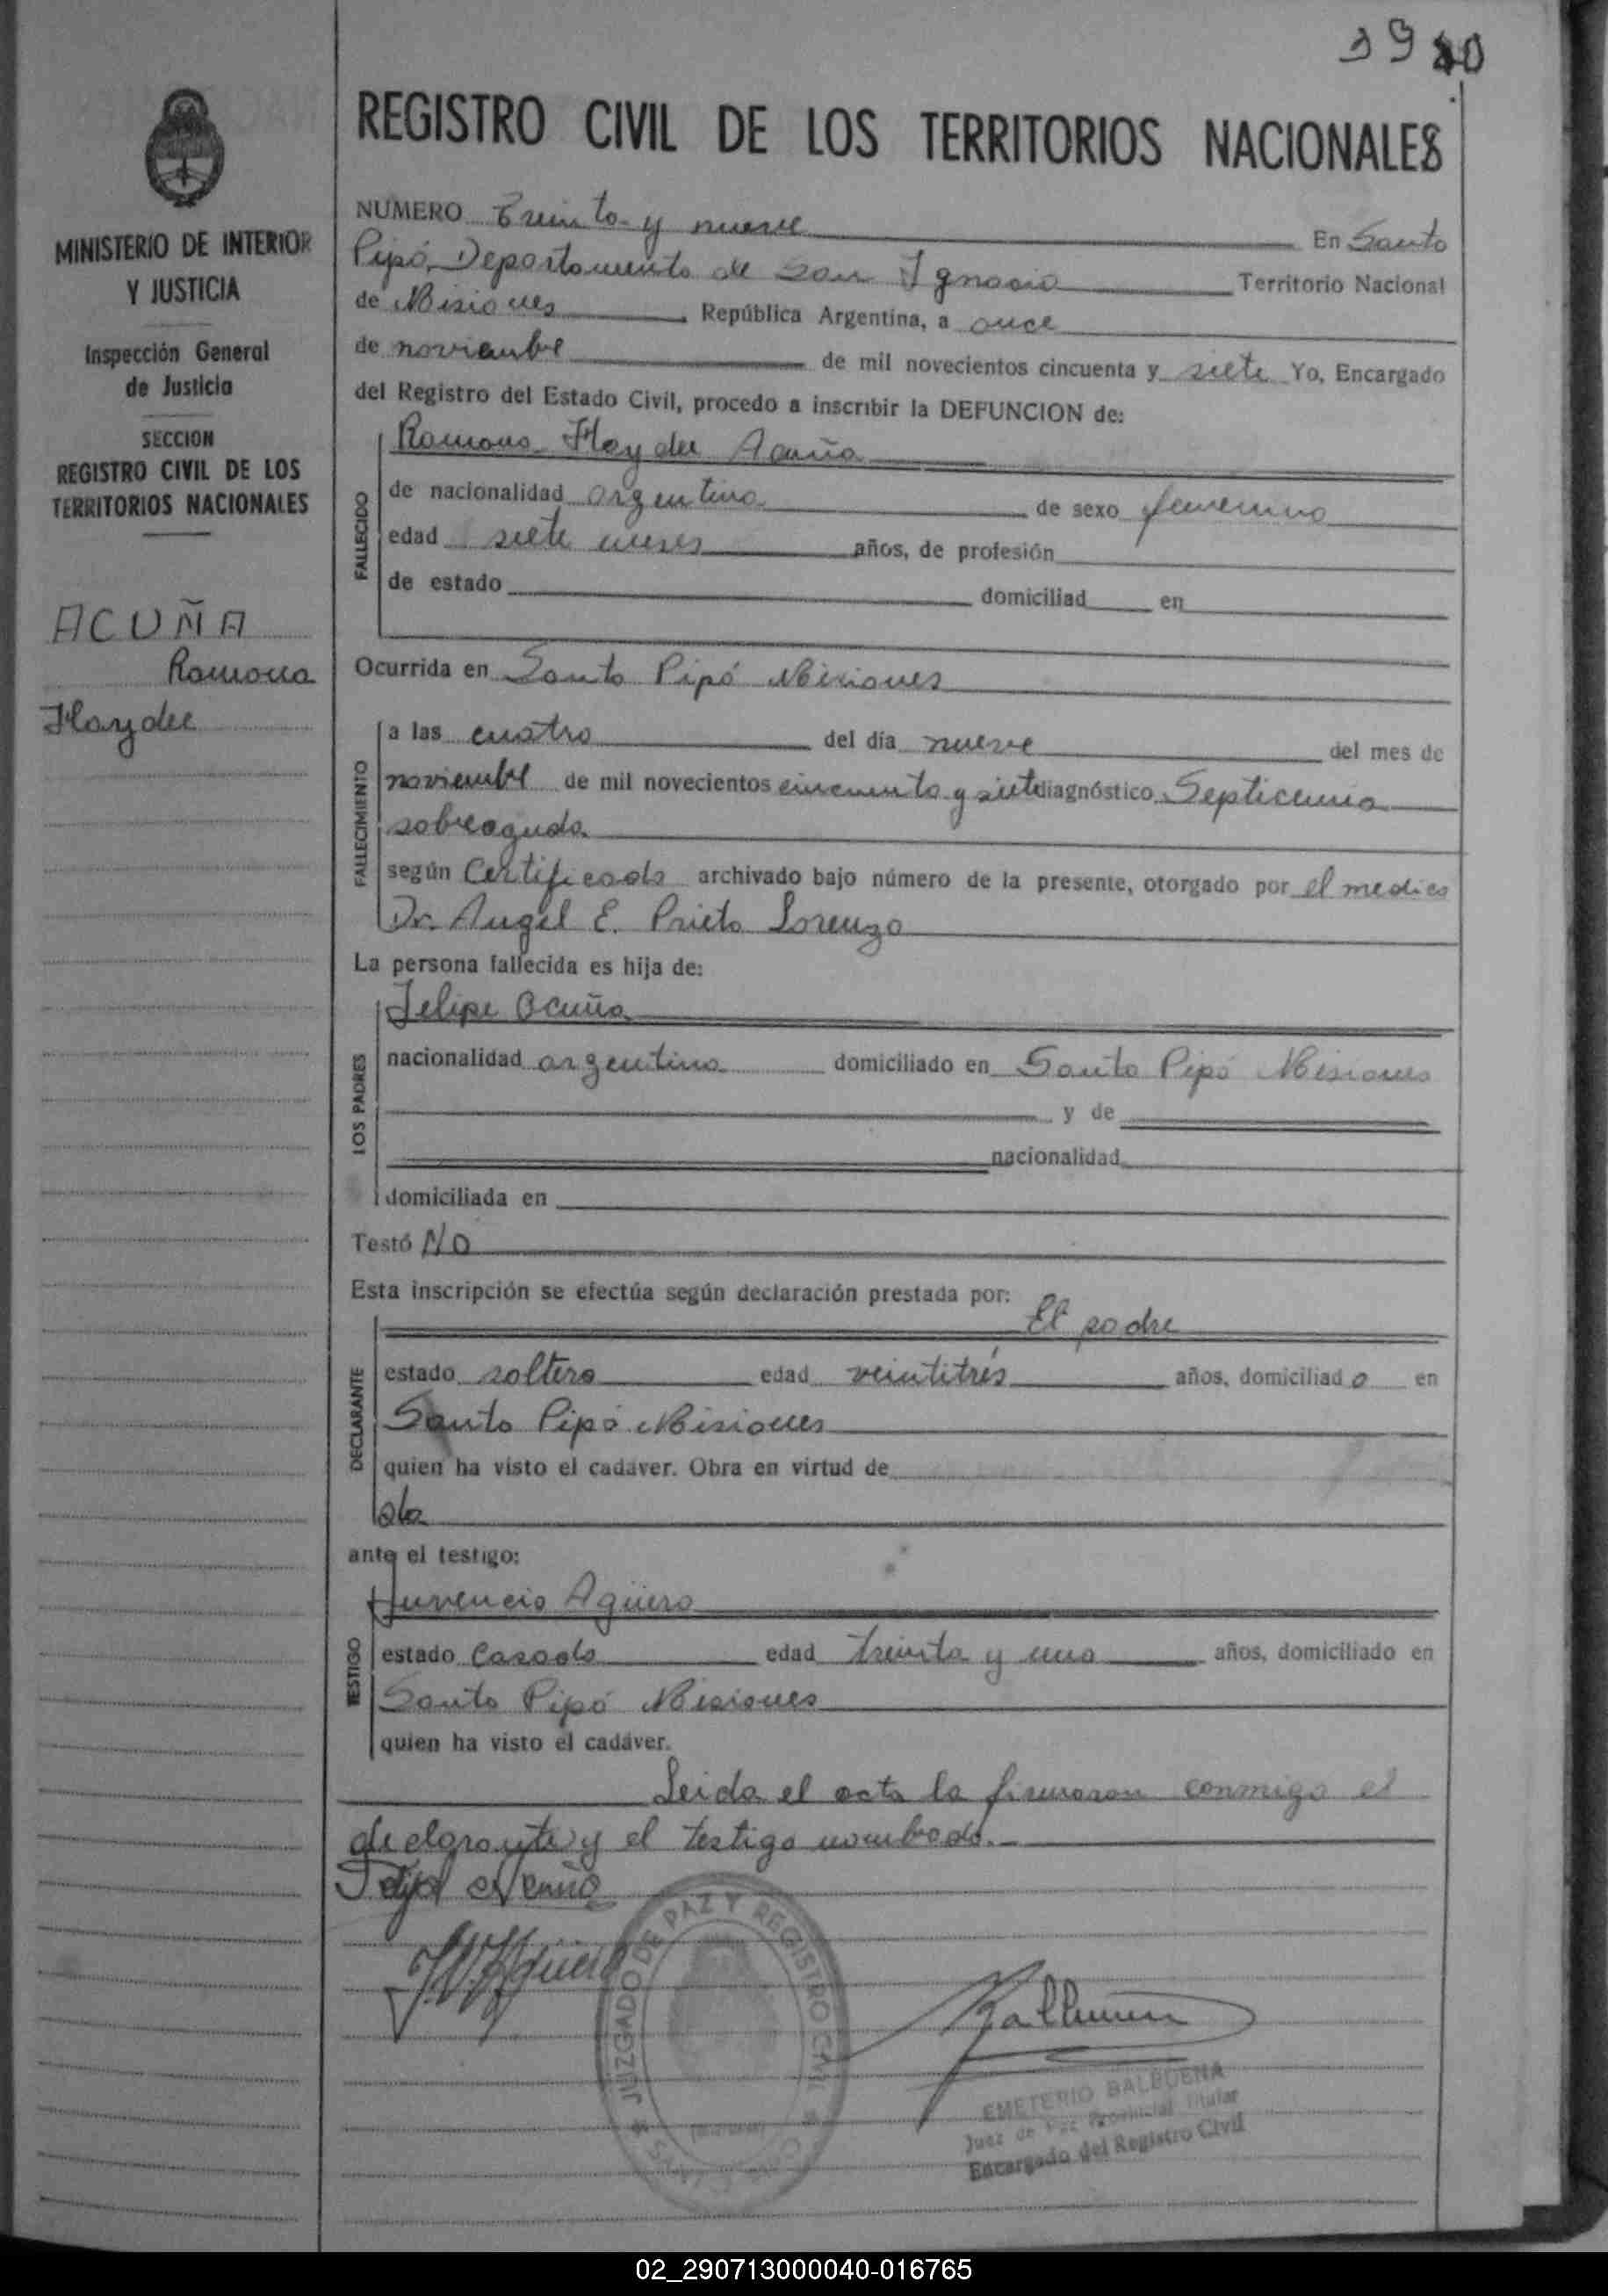 39 40
REGISTRO CIVIL DE LOS TERRITORIOS NACIONALES
MINISTERIO DE INTERIOR
Y JUSTICIA
Inspección General
de Justicia
SECCION
REGISTRO CIVIL DE LOS
TERRITORIOS NACIONALES
ACUÑA
Ramona
Haydee
NUMERO Treinta y nueve En Santo
Pipó, Departamento de San Ignacio Territorio Nacional
de Misiones República Argentina, a once
de noviembre de mil novecientos cincuenta y siete Yo, Encargado
del Registro del Estado Civil, procedo a inscribir la DEFUNCION de:
FALLECIDO
Ramona Haydee Acuña
de nacionalidad argentina de sexo femenino
edad siete meses años, de profesión
de estado domiciliad en
Ocurrida en Santo Pipó Misiones
FALLECIMIENTO
a las cuatro del día nueve del mes de
noviembre de mil novecientos cincuenta y siete diagnóstico Septicemia
sobreaguda
según Certificado archivado bajo número de la presente, otorgado por el medico
Dr. Angel E. Prieto Lorenzo
La persona fallecida es hija de:
LOS PADRES
Felipe Acuña
nacionalidad argentina domiciliado en Santo Pipó Misiones
y de
nacionalidad
domiciliada en
Testó No
Esta inscripción se efectúa según declaración prestada por:
DECLARANTE
El padre
estado soltero edad veintitrés años, domiciliado en
Santo Pipó Misiones
quien ha visto el cadáver. Obra en virtud de
ante el testigo:
TESTIGO
Juvencio Agüero
estado Casado edad treinta y uno años, domiciliado en
Santo Pipó Misiones
quien ha visto el cadáver.
Leida el acta la firmaron conmigo el
declarante y el testigo nombrado.
JUZGADO DE PAZ Y REGISTRO CIVIL
EMETERIO BALBUENA
Juez de Paz Provincial Titular
Encargado del Registro Civil
02_290713000040-016765